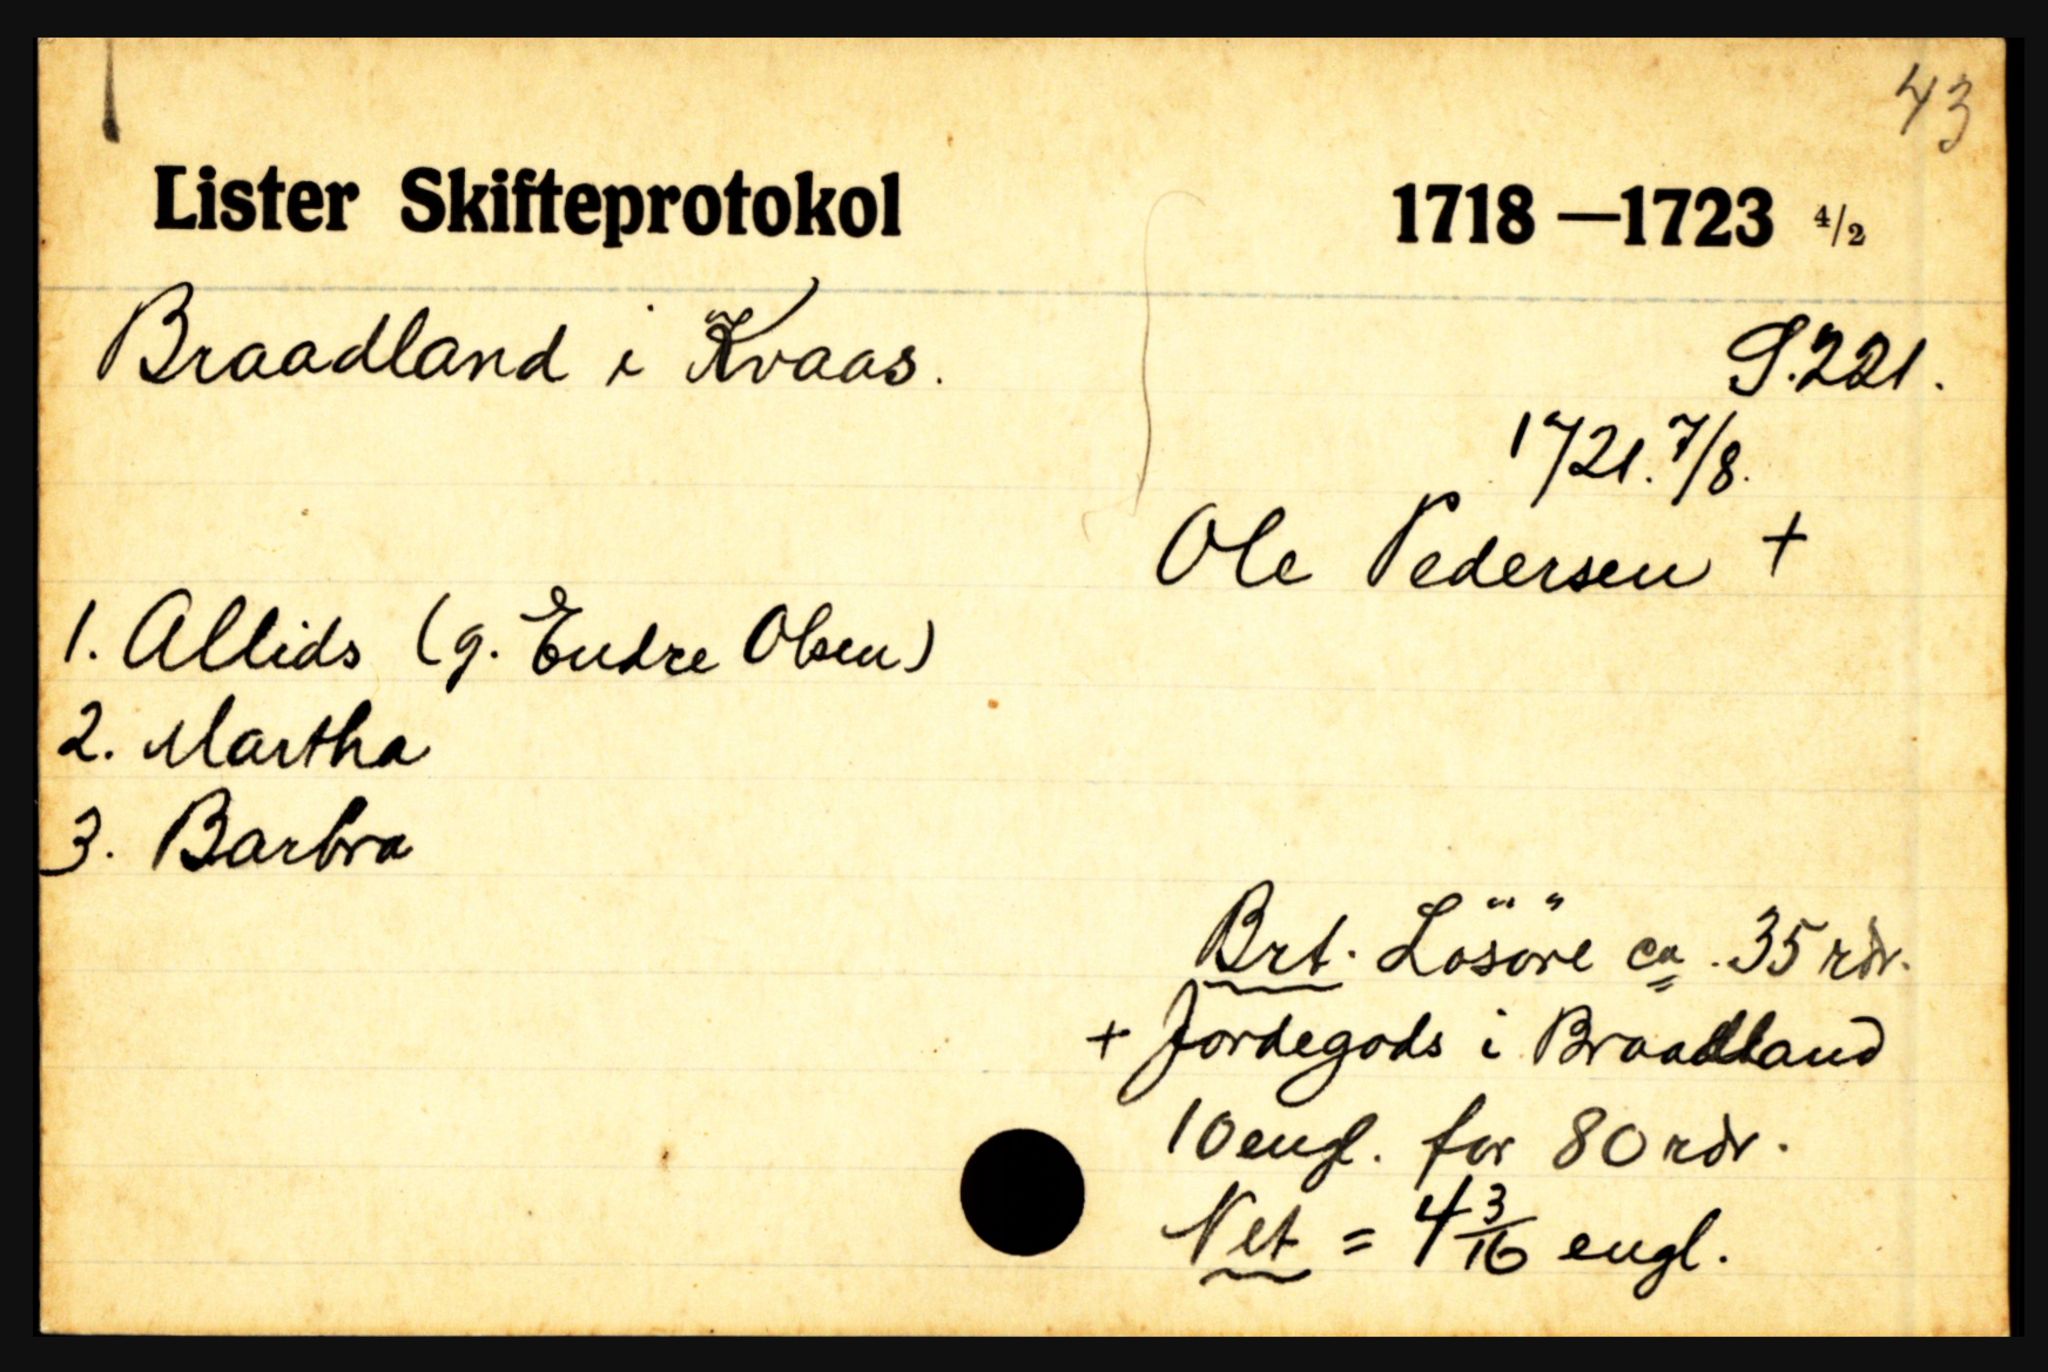 43
Lister Skifteprotokol 1718—1723 4/2
Braadland i Kvaas.
S. 221.
1721. 7/8.
Ole Pedersen +
1. Allids (g. Endre Olsen)
2. Martha
3. Barbra
Brt. Lösöre ca. 35 rdr.
+ Jordegods i Braadland
10 engl. for 80 rdr.
Net = 4 3/16 engl.